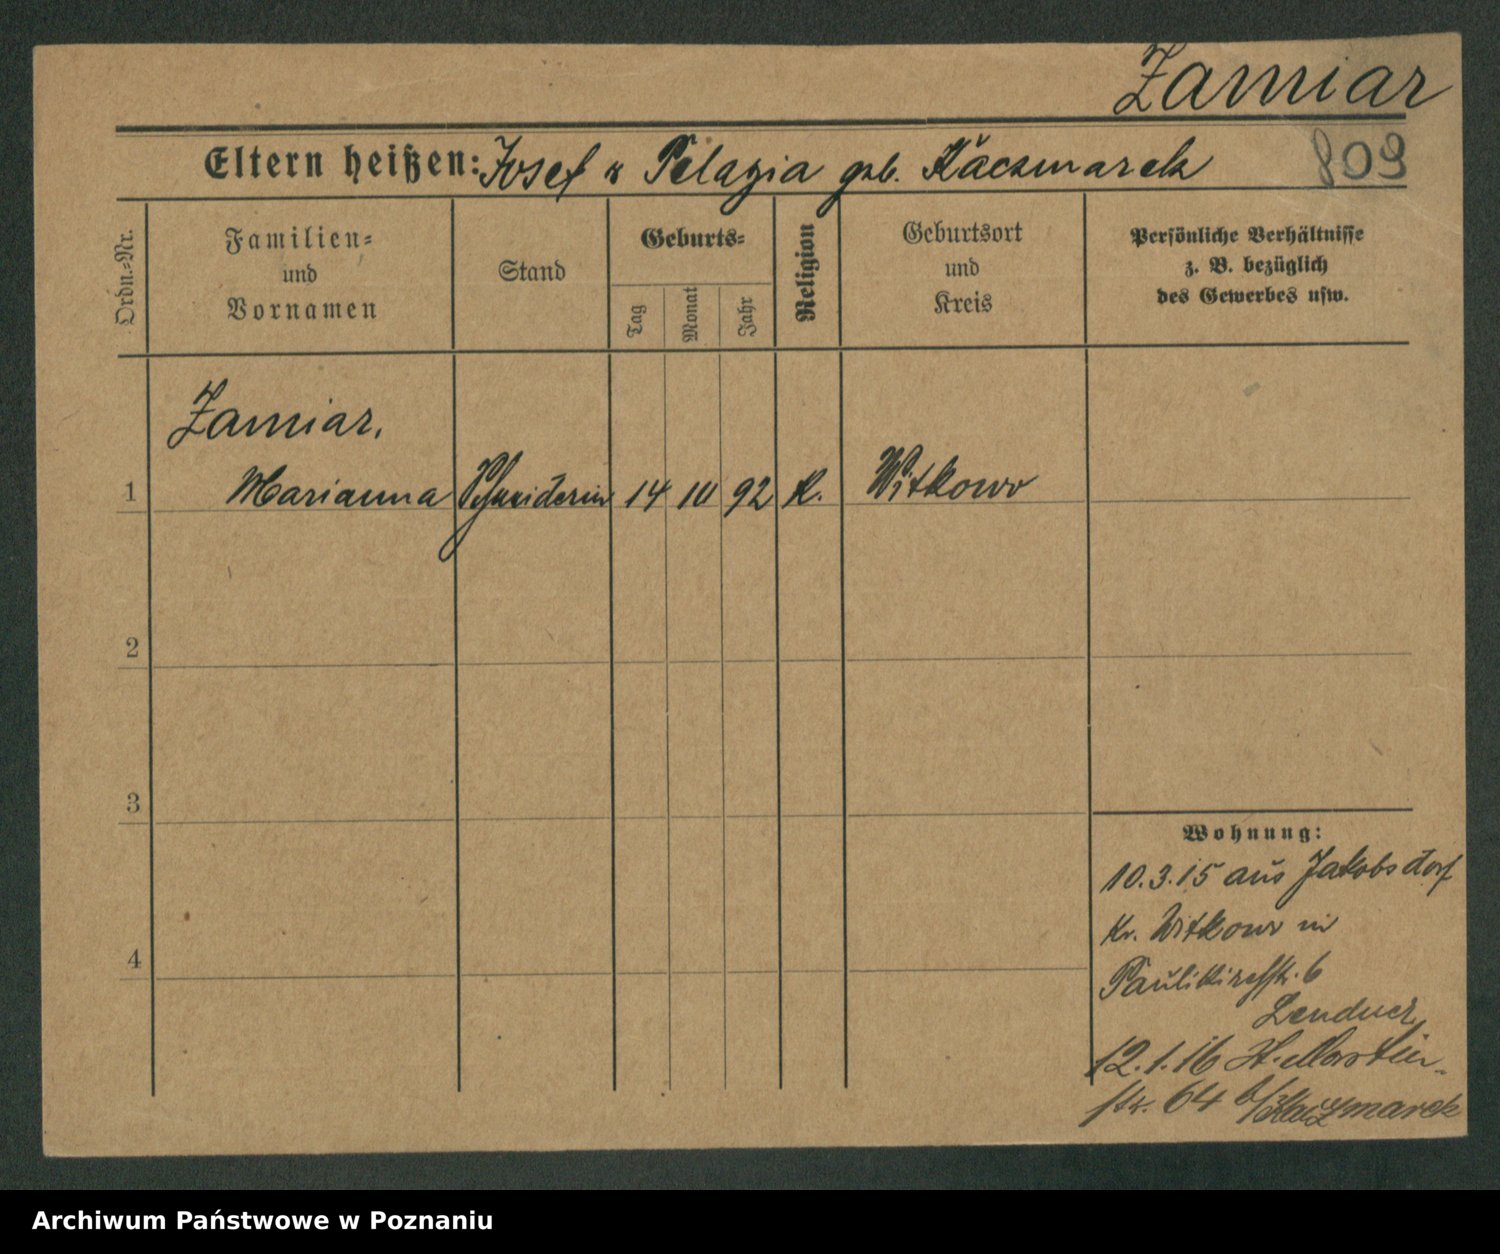 Zamiar
Eltern heißen: Josef u Pelagia geb. Kaczmarek 809
Ordn.-Nr.
Familien-
und
Vornamen
Stand
Geburts-
Tag
Monat
Jahr
Religion
Geburtsort
und
Kreis
Persönliche Verhältnisse
z. B. bezüglich
des Gewerbes usw.
Zamiar,
1 Marianna Schneiderin 14 10 92 k. Witkowo
2
3
4
Wohnung:
10.3.15 aus Jakobsdorf
Kr. Witkowo in
Paulikirchstr. 6
12.1.16 St. Martin-
str. 64 b/Kaczmarek
Archiwum Państwowe w Poznaniu